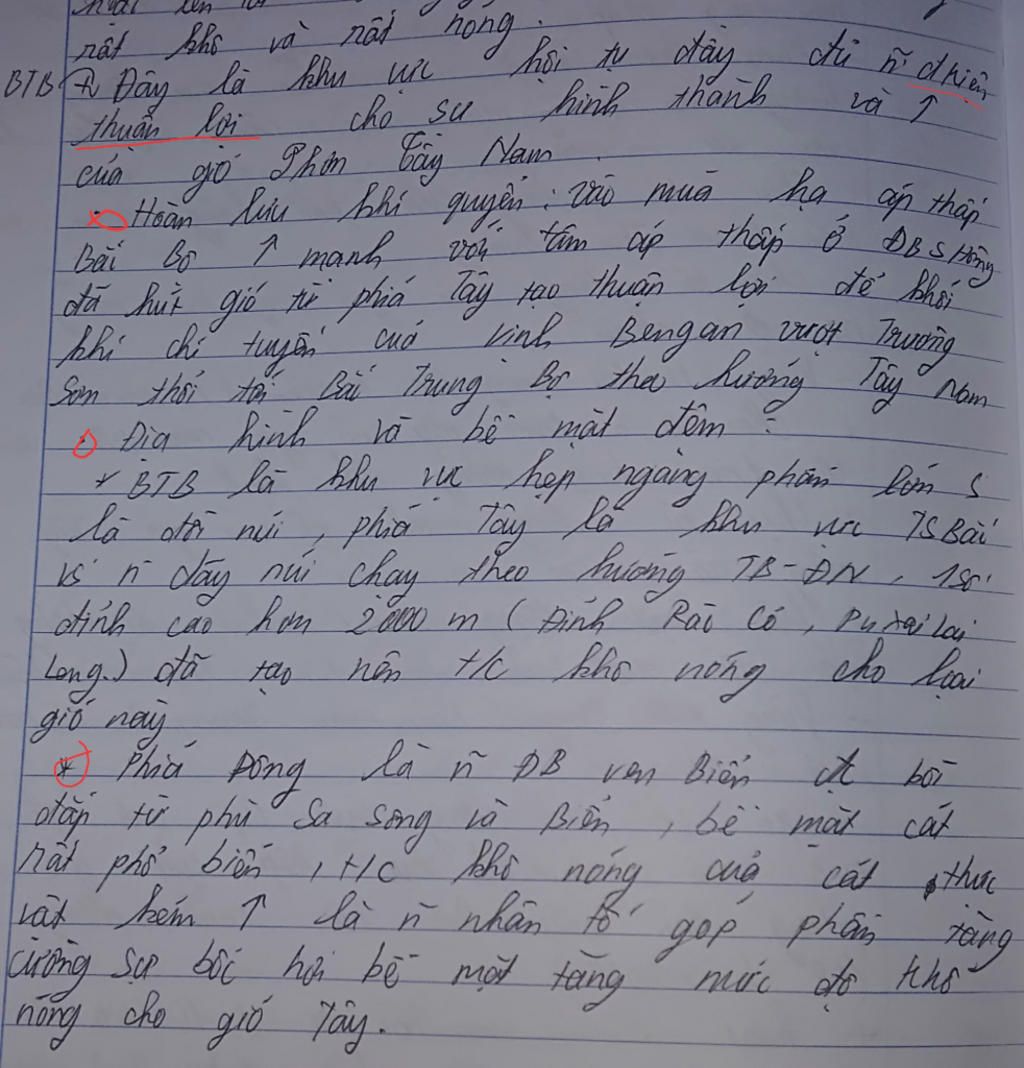 rất khô và rất nóng.
BTB + Đây là khu vực hội tụ đầy đủ ~n đkiện
thuận lợi cho sự hình thành và ↑
của gió Phơn Tây Nam.
Hoàn lưu khí quyển: vào mùa hạ áp thấp
Bắc Bộ ↑ mạnh với tâm áp thấp ở ĐB S Hồng
đã hút gió từ phía Tây tạo thuận lợi để khối
khí chí tuyến của vịnh Bengan vượt Trường
Sơn thổi tới Bắc Trung Bộ theo hướng Tây Nam
Địa hình và bề mặt đệm:
* BTB là khu vực hẹp ngang phần lớn S
là đồi núi, phía Tây là khu vực TS Bắc
vs ~n dãy núi chạy theo hướng TB-ĐN, 1 số
đỉnh cao hơn 2000 m (Đỉnh Rào Cỏ, Pu xai Lai
Leng.) đã tạo nên t/c khô nóng cho loại
gió này
* Phía Đông là ~n ĐB ven Biển đt bồi
đắp từ phù sa sông và Biển, bề mặt cát
rất phổ biến, t/c khô nóng của cát, thực
vật kém ↑ là ~n nhân tố góp phần tăng
cường sự bốc hơi bề mặt tăng mức độ khô
nóng cho gió Tây.